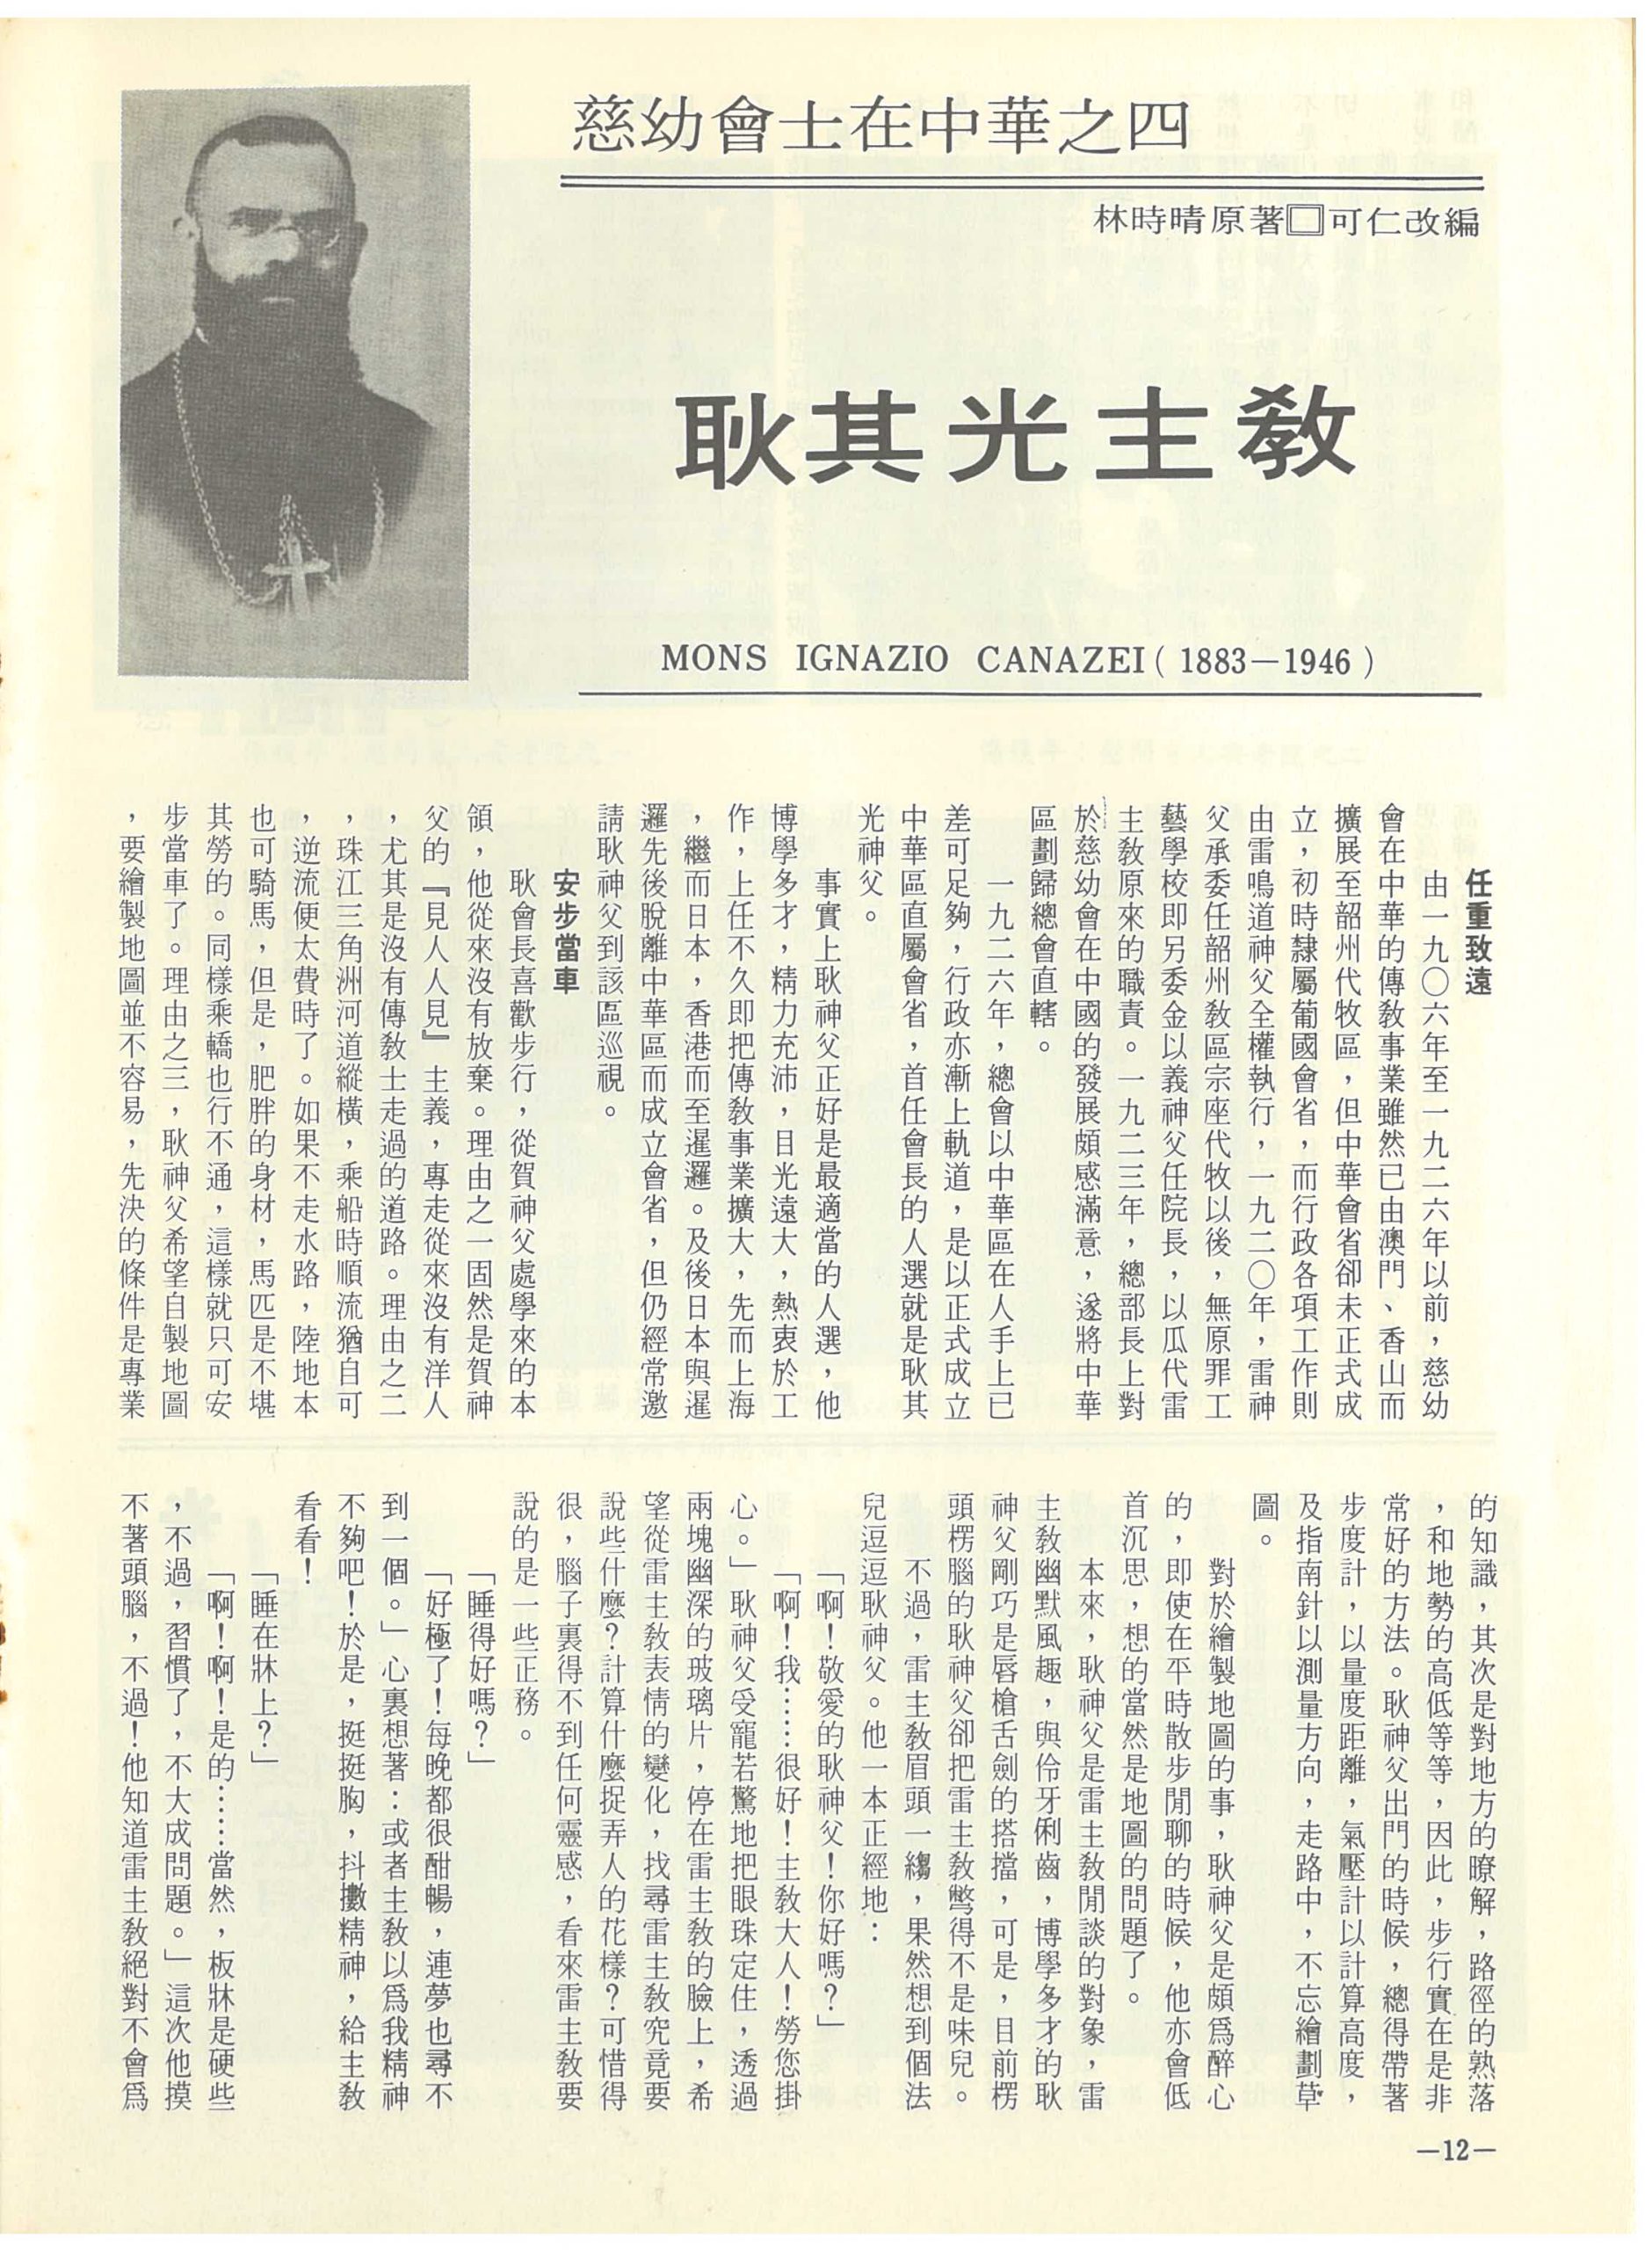 慈幼會士在中華之四
林時晴原著□可仁改編
耿其光主教
MONS IGNAZIO CANAZEI (1883—1946)
任重致遠
由一九〇六年至一九二六年以前，慈幼
會在中華的傳教事業雖然已由澳門、香山而
擴展至韶州代牧區，但中華會省卻未正式成
立，初時隸屬葡國會省，而行政各項工作則
由雷鳴道神父全權執行，一九二〇年，雷神
父承委任韶州教區宗座代牧以後，無原罪工
藝學校即另委金以義神父任院長，以瓜代雷
主教原來的職責。一九二三年，總部長上對
於慈幼會在中國的發展頗感滿意，遂將中華
區劃歸總會直轄。
一九二六年，總會以中華區在人手上已
差可足夠，行政亦漸上軌道，是以正式成立
中華區直屬會省，首任會長的人選就是耿其
光神父。
事實上耿神父正好是最適當的人選，他
博學多才，精力充沛，目光遠大，熱衷於工
作，上任不久即把傳教事業擴大，先而上海
，繼而日本，香港而至暹邏。及後日本與暹
邏先後脫離中華區而成立會省，但仍經常邀
請耿神父到該區巡視。
安步當車
耿會長喜歡步行，從賀神父處學來的本
領，他從來沒有放棄。理由之一固然是賀神
父的『見人人見』主義，專走從來沒有洋人
，尤其是沒有傳教士走過的道路。理由之二
，珠江三角洲河道縱橫，乘船時順流猶自可
，逆流便太費時了。如果不走水路，陸地本
也可騎馬，但是，肥胖的身材，馬匹是不堪
其勞的。同樣乘轎也行不通，這樣就只可安
步當車了。理由之三，耿神父希望自製地圖
，要繪製地圖並不容易，先決的條件是專業
的知識，其次是對地方的瞭解，路徑的熟落
，和地勢的高低等等，因此，步行實在是非
常好的方法。耿神父出門的時候，總得帶著
步度計，以量度距離，氣壓計以計算高度，
及指南針以測量方向，走路中，不忘繪劃草
圖。
對於繪製地圖的事，耿神父是頗爲醉心
的，即使在平時散步閒聊的時候，他亦會低
首沉思，想的當然是地圖的問題了。
本來，耿神父是雷主教閒談的對象，雷
主教幽默風趣，與伶牙俐齒，博學多才的耿
神父剛巧是唇槍舌劍的搭擋，可是，目前楞
頭楞腦的耿神父卻把雷主教彆得不是味兒。
不過，雷主教眉頭一縐，果然想到個法
兒逗逗耿神父。他一本正經地：
「啊！敬愛的耿神父！你好嗎？」
「啊！我……很好！主教大人！勞您掛
心。」耿神父受寵若驚地把眼珠定住，透過
兩塊幽深的玻璃片，停在雷主教的臉上，希
望從雷主教表情的變化，找尋雷主教究竟要
說些什麼？計算什麼捉弄人的花樣？可惜得
很，腦子裏得不到任何靈感，看來雷主教要
說的是一些正務。
「睡得好嗎？」
「好極了！每晚都很酣暢，連夢也尋不
到一個。」心裏想著：或者主教以爲我精神
不夠吧！於是，挺挺胸，抖擻精神，給主教
看看！
「睡在牀上？」
「啊！啊！是的……當然，板牀是硬些
，不過，習慣了，不大成問題。」這次他摸
不著頭腦，不過！他知道雷主教絕對不會爲
—12—